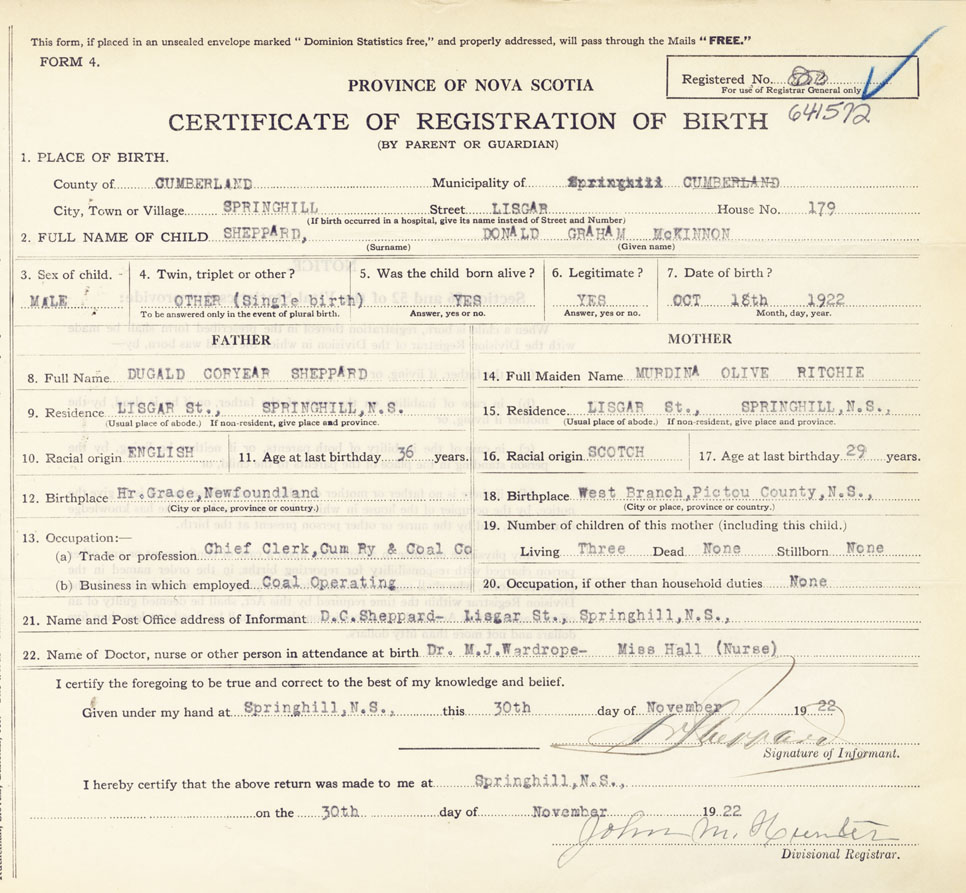 This form, if placed in an unsealed envelope marked " Dominion Statistics free," and properly addressed, will pass through the Mails " FREE."
FORM 4.
PROVINCE OF NOVA SCOTIA
Registered No.
For use of Registrar General only
641572
CERTIFICATE OF REGISTRATION OF BIRTH
(BY PARENT OR GUARDIAN)
1. PLACE OF BIRTH.
County of CUMBERLAND Municipality of Springhill CUMBERLAND
City, Town or Village SPRINGHILL Street LISGAR House No. 179
(If birth occurred in a hospital, give its name instead of Street and Number)
2. FULL NAME OF CHILD SHEPPARD, DONALD GRAHAM McKINNON
(Surname) (Given name)
3. Sex of child. 4. Twin, triplet or other? 5. Was the child born alive? 6. Legitimate? 7. Date of birth?
MALE OTHER (Single birth) YES YES OCT 18th 1922
To be answered only in the event of plural birth. Answer, yes or no. Answer, yes or no. Month, day, year.
FATHER MOTHER
8. Full Name DUGALD CORYEAR SHEPPARD 14. Full Maiden Name MURDINA OLIVE RITCHIE
9. Residence LISGAR St., SPRINGHILL,N.S. 15. Residence. LISGAR St., SPRINGHILL,N.S.,
(Usual place of abode.) If non-resident, give place and province. (Usual place of abode.) If non-resident, give place and province.
10. Racial origin ENGLISH 11. Age at last birthday 36 years. 16. Racial origin SCOTCH 17. Age at last birthday 29 years.
12. Birthplace Hr.Grace,Newfoundland 18. Birthplace West Branch,Pictou County,N.S.,
(City or place, province or country.) (City or place, province or country.)
19. Number of children of this mother (including this child.)
13. Occupation:—
(a) Trade or profession Chief Clerk,Cum Ry & Coal Co Living Three Dead None Stillborn None
(b) Business in which employed Coal Operating 20. Occupation, if other than household duties None
21. Name and Post Office address of Informant D.C.Sheppard- Lisgar St., Springhill,N.S.,
22. Name of Doctor, nurse or other person in attendance at birth Dr. M.J.Wardrope- Miss Hall (Nurse)
I certify the foregoing to be true and correct to the best of my knowledge and belief.
Given under my hand at Springhill,N.S., this 30th day of November 19 22
Sheppard
Signature of Informant.
I hereby certify that the above return was made to me at Springhill,N.S.,
on the 30th day of November 19 22
John M. Hunter
Divisional Registrar.